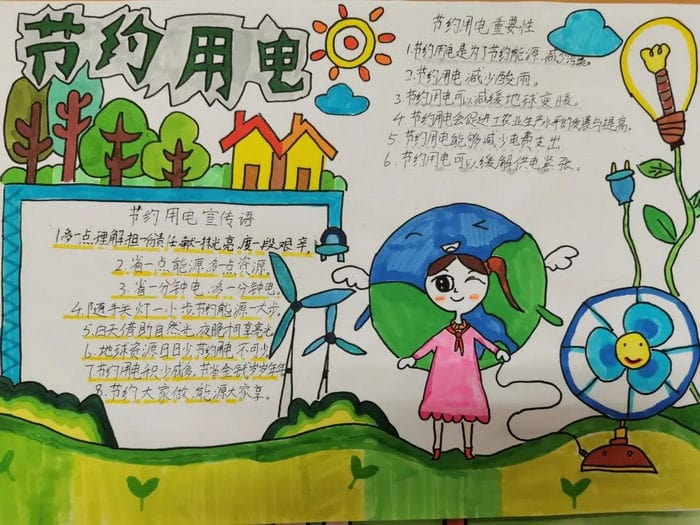 节约用电
节约用电重要性
1.节约用电是为了节约能源,减少污染。
2.节约用电,减少酸雨。
3.节约用电可以减缓地球变暖。
4 节约用电会促进工农业生产水平的发展与提高。
5 节约用电能够减少电费支出
6.节约用电可以缓解供电紧张。
节约用电宣传语
1.多一点理解,担一份责任,献一挂光亮,度一段艰辛,
2.省一点能源,多点资源。
3.省一分钟电,多一分钟电。
4.随手关灯一小步,节约能源一大步。
5.白天借助自然光,夜晚
6.地球资源日日少,节约用电不可少
7.节约用电积少成多,节省金钱岁岁年年
8.节约大家做,能源大家享。